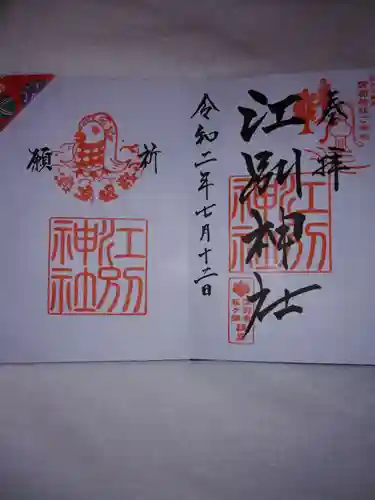 奉拝
江別神社
江別神社
令和二年七月十二日
祈
願
江別神社